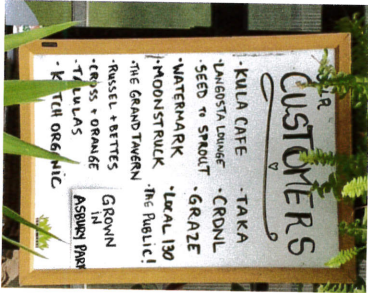 OUR
CUSTOMERS
· KULA CAFE
· LANGOSTA LOUNGE
· SEED TO SPROUT
· WATERMARK
· MOONSTRUCK
· THE GRAND TAVERN
· RUSSEL + BETTES
· CROSS + ORANGE
· TALULAS
· KITCH ORGANIC
· TAKA
· CRDNL
· GRAZE
· LOCAL 130
· THE PUBLIC!
GROWN
IN
ASBURY PARK